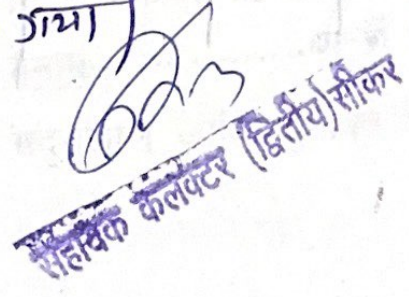 गया।
सहायक कलेक्टर (द्वितीय) सीकर